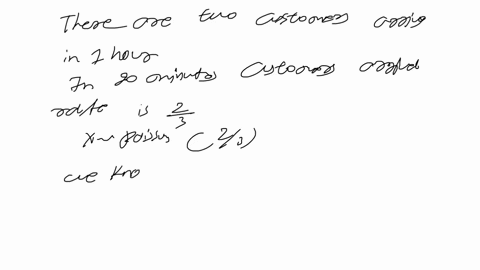 There are two customers arrive
in 1 hour
In 20 minutes customers arrived
rate is 2/3
X~ Poisson (2/3)
we kno